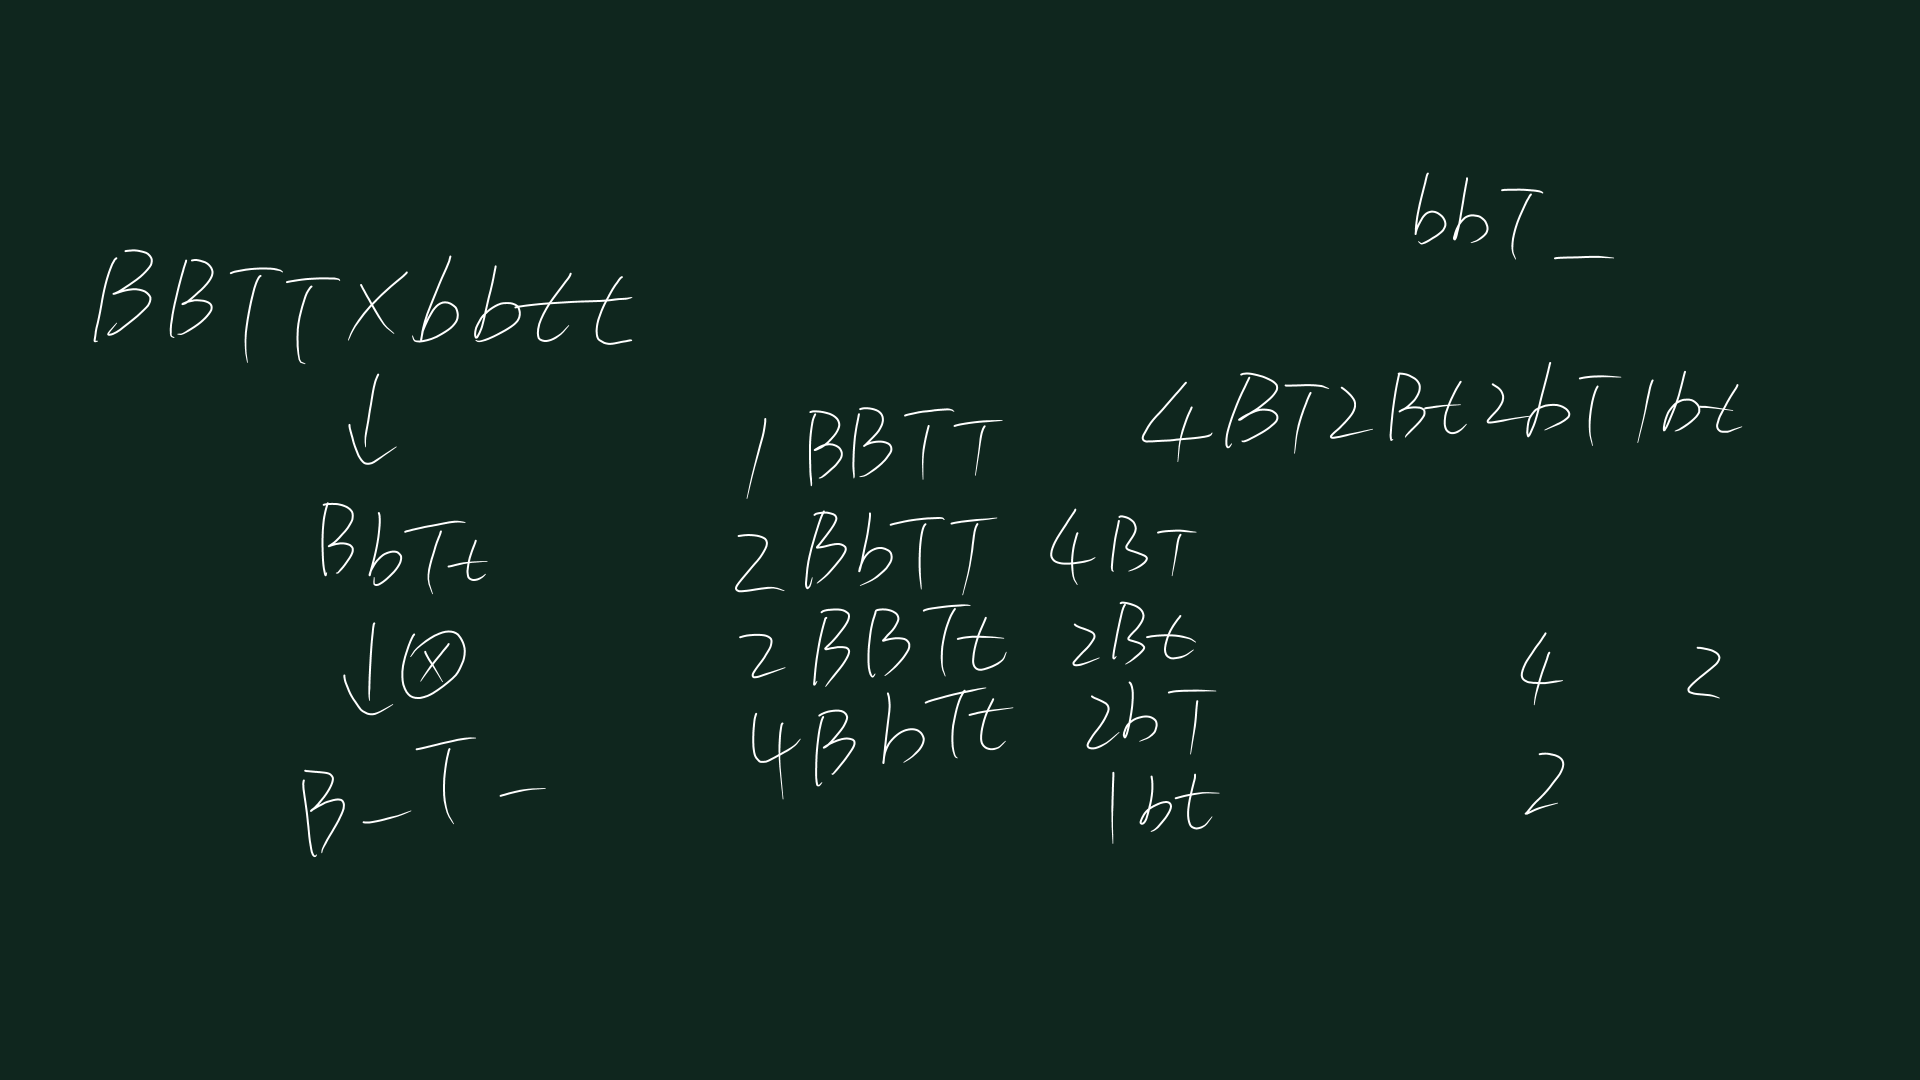 BBTT×bbtt
↓
BbTt
↓ⓧ
B_T_
1BBTT
2BbTT
2BBTt
4BbTt
4BT
2Bt
2bT
1bt
bbT_
4BT2Bt2bT1bt
4 2
2